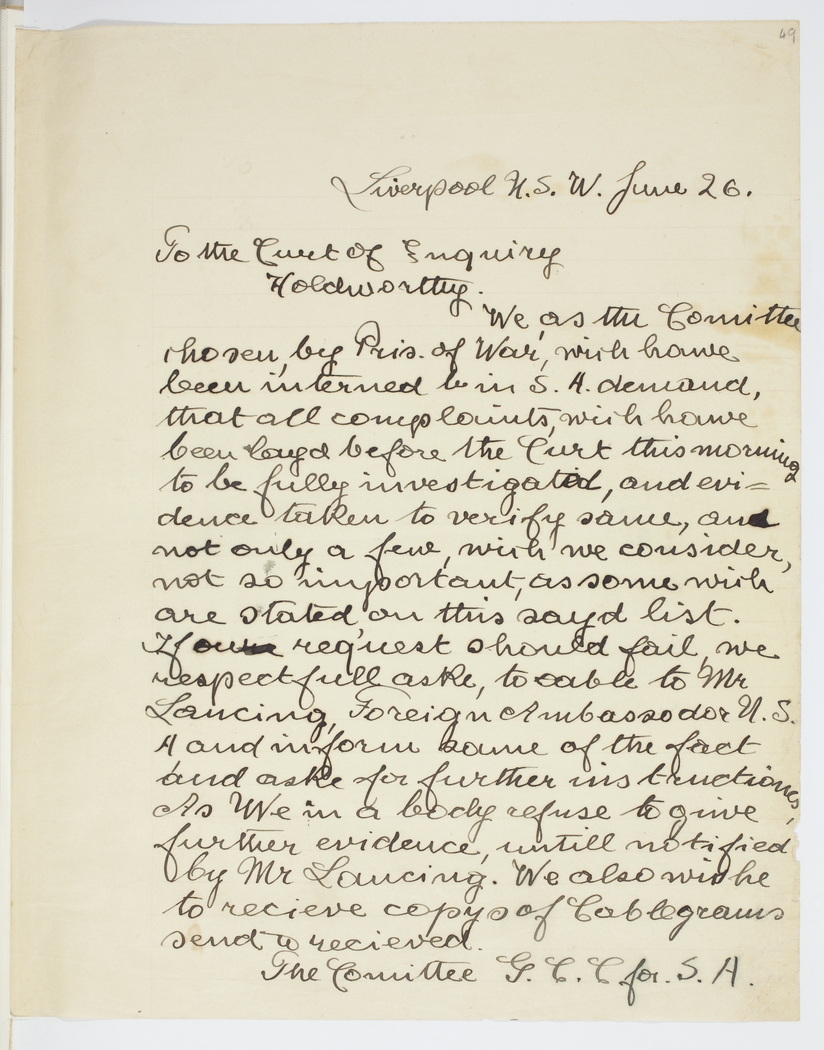 49
Liverpool N.S.W. June 26.
To the Curt of Enquiry
Holdworthy.
We, as the Comittee
chosen, by Pris. of War, wich hawe
been interned in S. A. demand,
that all complaints, wich hawe
been layd before the Curt this morning
to be fully investigatid, and evi=
dence taken to verify same, and
not only a few, wich we consider,
not so important, as some wich
are stated on this sayd list.
If our request should fail, we
respectfull aske, to cable to Mr
Lancing, Foreign Ambassodor U. S.
A and inform same of the fact
and aske for further instructiones,
As We in a body refuse to giwe
further evidence, untill notified
by Mr Lancing. We also wishe
to recieve copys of Cablegrams
send & recieved.
The Comittee G. C. C. for. S. A.